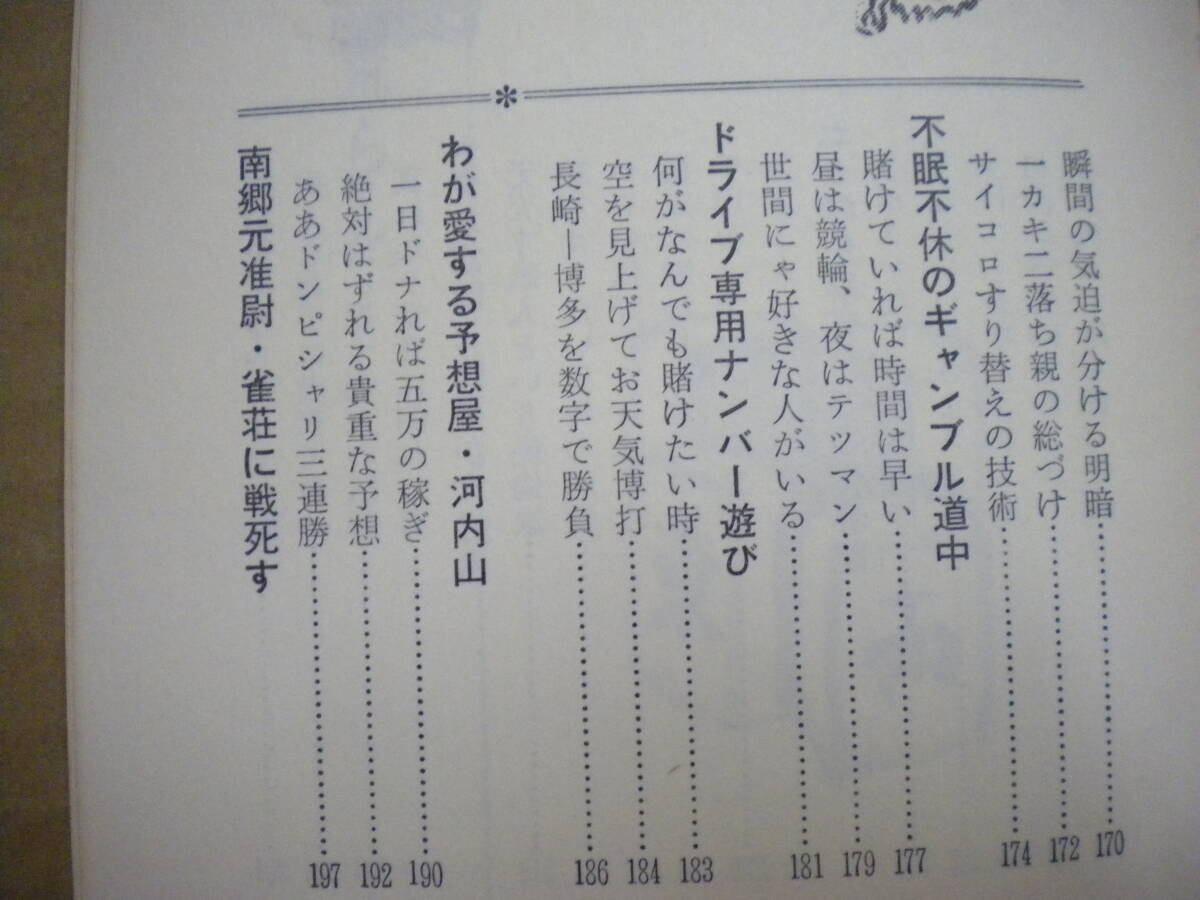 瞬間の気迫が分ける明暗……………………170
一カキ二落ち親の総づけ……………………172
サイコロすり替えの技術……………………174
不眠不休のギャンブル道中
賭けていれば時間は早い……………………177
昼は競輪、夜はテツマン……………………179
世間にゃ好きな人がいる……………………181
ドライブ専用ナンバー遊び
何がなんでも賭けたい時……………………183
空を見上げてお天気博打……………………184
長崎―博多を数字で勝負……………………186
わが愛する予想屋・河内山
一日ドナれば五万の稼ぎ……………………190
絶対はずれる貴重な予想……………………192
ああドンピシャリ三連勝……………………197
南郷元准尉・雀荘に戦死す